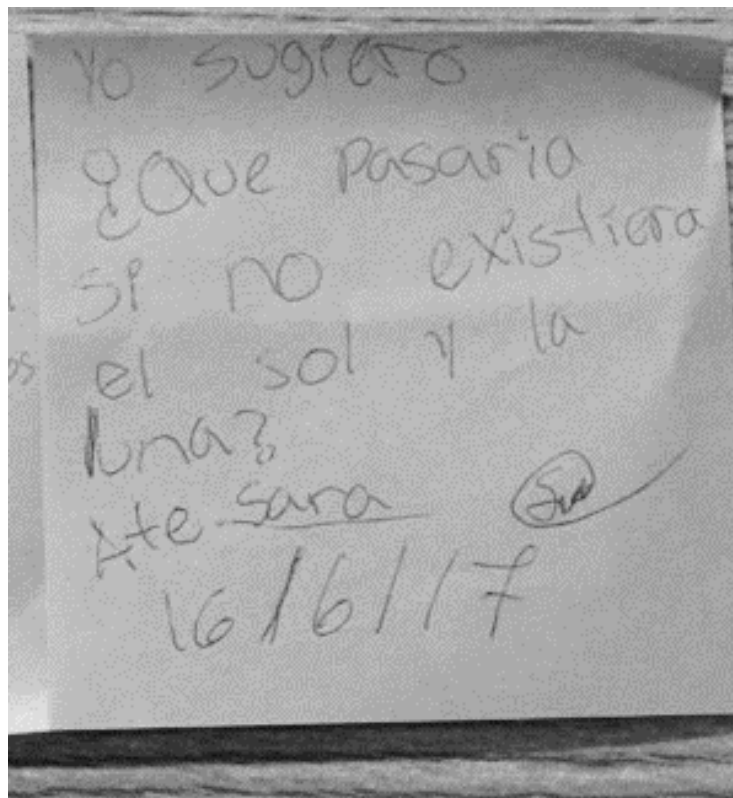 Yo sugiero
¿Que pasaria
si no existiera
el sol y la
luna?
Ate Sara
16/6/17